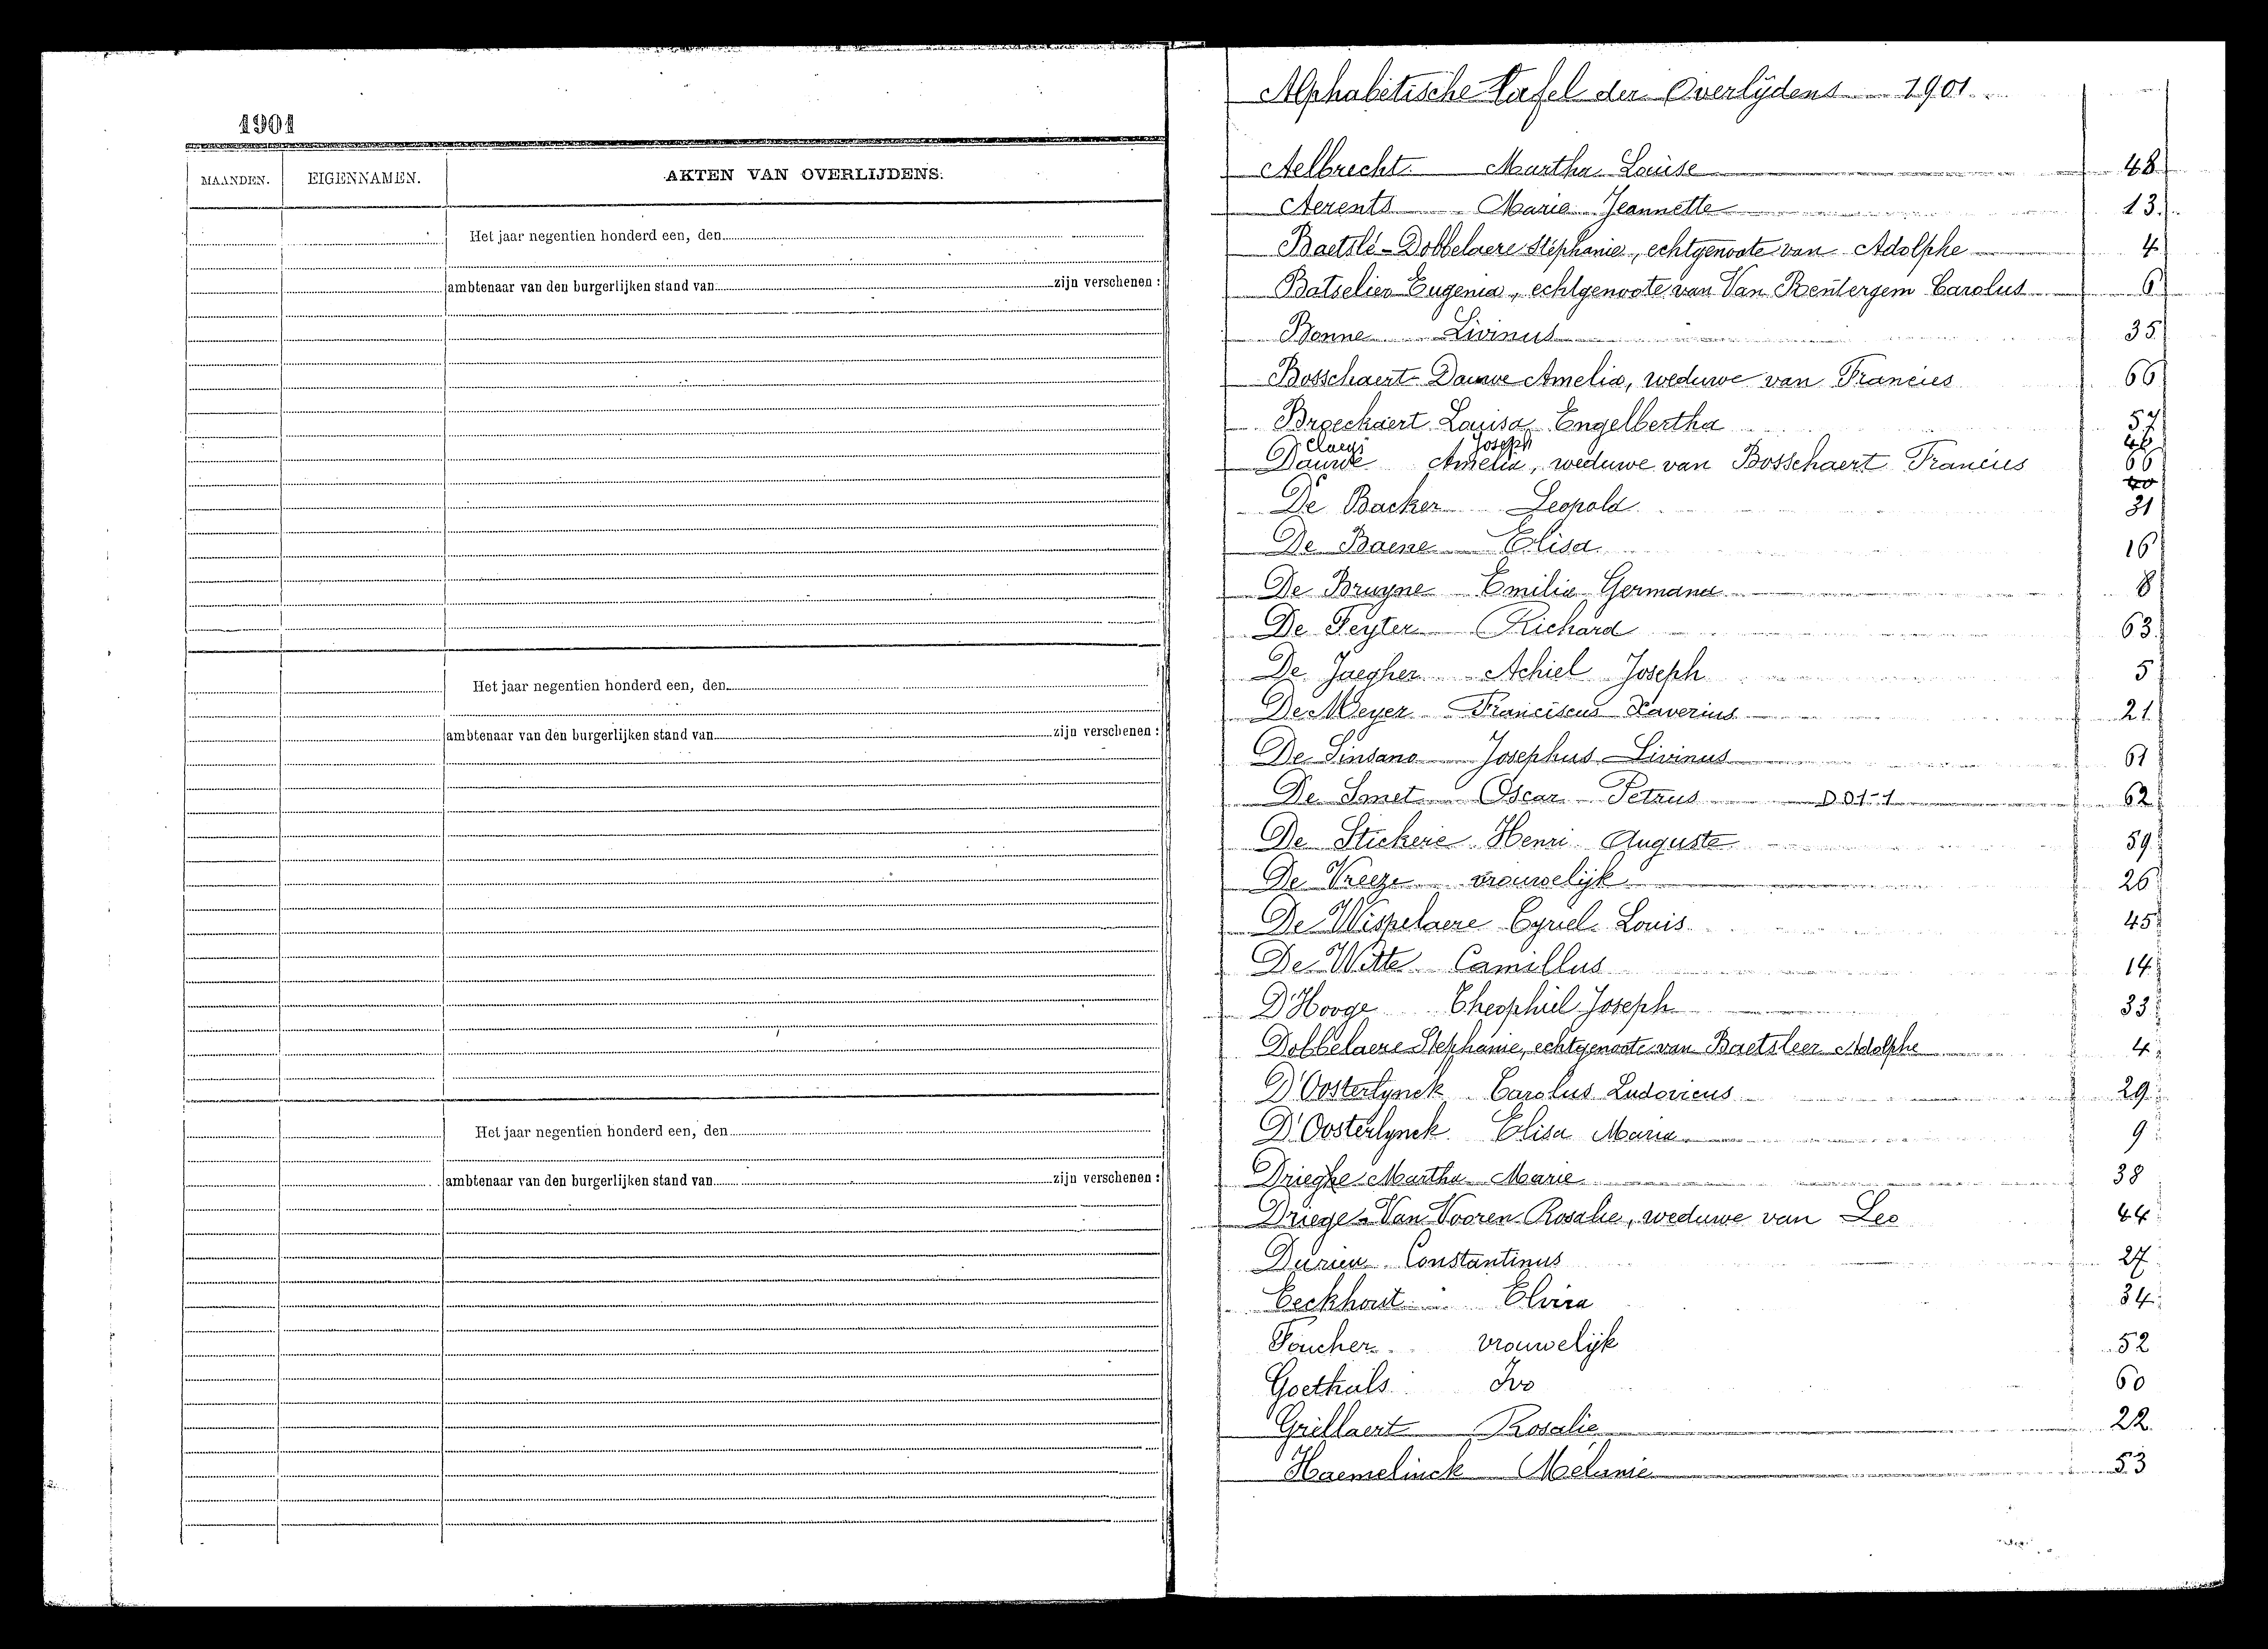 1901
MAANDEN. EIGENNAMEN. AKTEN VAN OVERLIJDENS.
Het jaar negentien honderd een, den
ambtenaar van den burgerlijken stand van zijn verschenen :
Het jaar negentien honderd een, den
ambtenaar van den burgerlijken stand van zijn verschenen :
Het jaar negentien honderd een, den
ambtenaar van den burgerlijken stand van zijn verschenen :
Alphabetische tafel der Overlijdens 1901
Aelbrecht Martha Louise 48
Aerents Marie Jeannette 13
Baetslé-Dobbelaere Stéphanie, echtgenoote van Adolphe 4
Batselier Eugenia, echtgenoote van Van Rentergem Carolus 6
Bonne Livinus 35
Bosschaert-Dauwe Amelia, weduwe van Francies 66
Broeckaert Louisa Engelbertha 57
Claeys Joseph 46
Dauwe Amelia, weduwe van Bosschaert Francies 66
De Backer Leopold 31
De Baene Elisa 16
De Bruyne Emilia Germana 8
De Feyter Richard 63
De Jaegher Achiel Joseph 5
De Meyer Franciscus Xaverius 21
De Sinsano Josephus Livinus 61
De Smet Oscar Petrus D 01-1 62
De Stickere Henri Auguste 59
De Vreeze vrouwelijk 26
De Wispelaere Cyriel Louis 45
De Witte Camillus 14
D'Hooge Theophiel Joseph 33
Dobbelaere Stephanie, echtgenoote van Baetsleer Adolphe 4
D'Oosterlynck Carolus Ludovicus 29
D'Oosterlynck Elisa Maria 9
Drieghe Martha Marie 38
Driege-Van Vooren Rosalie, weduwe van Leo 44
Durieu Constantinus 27
Eeckhout Elvira 34
Foucher vrouwelijk 52
Goethals Ivo 60
Grillaert Rosalie 22
Haemelinck Mélanie 53